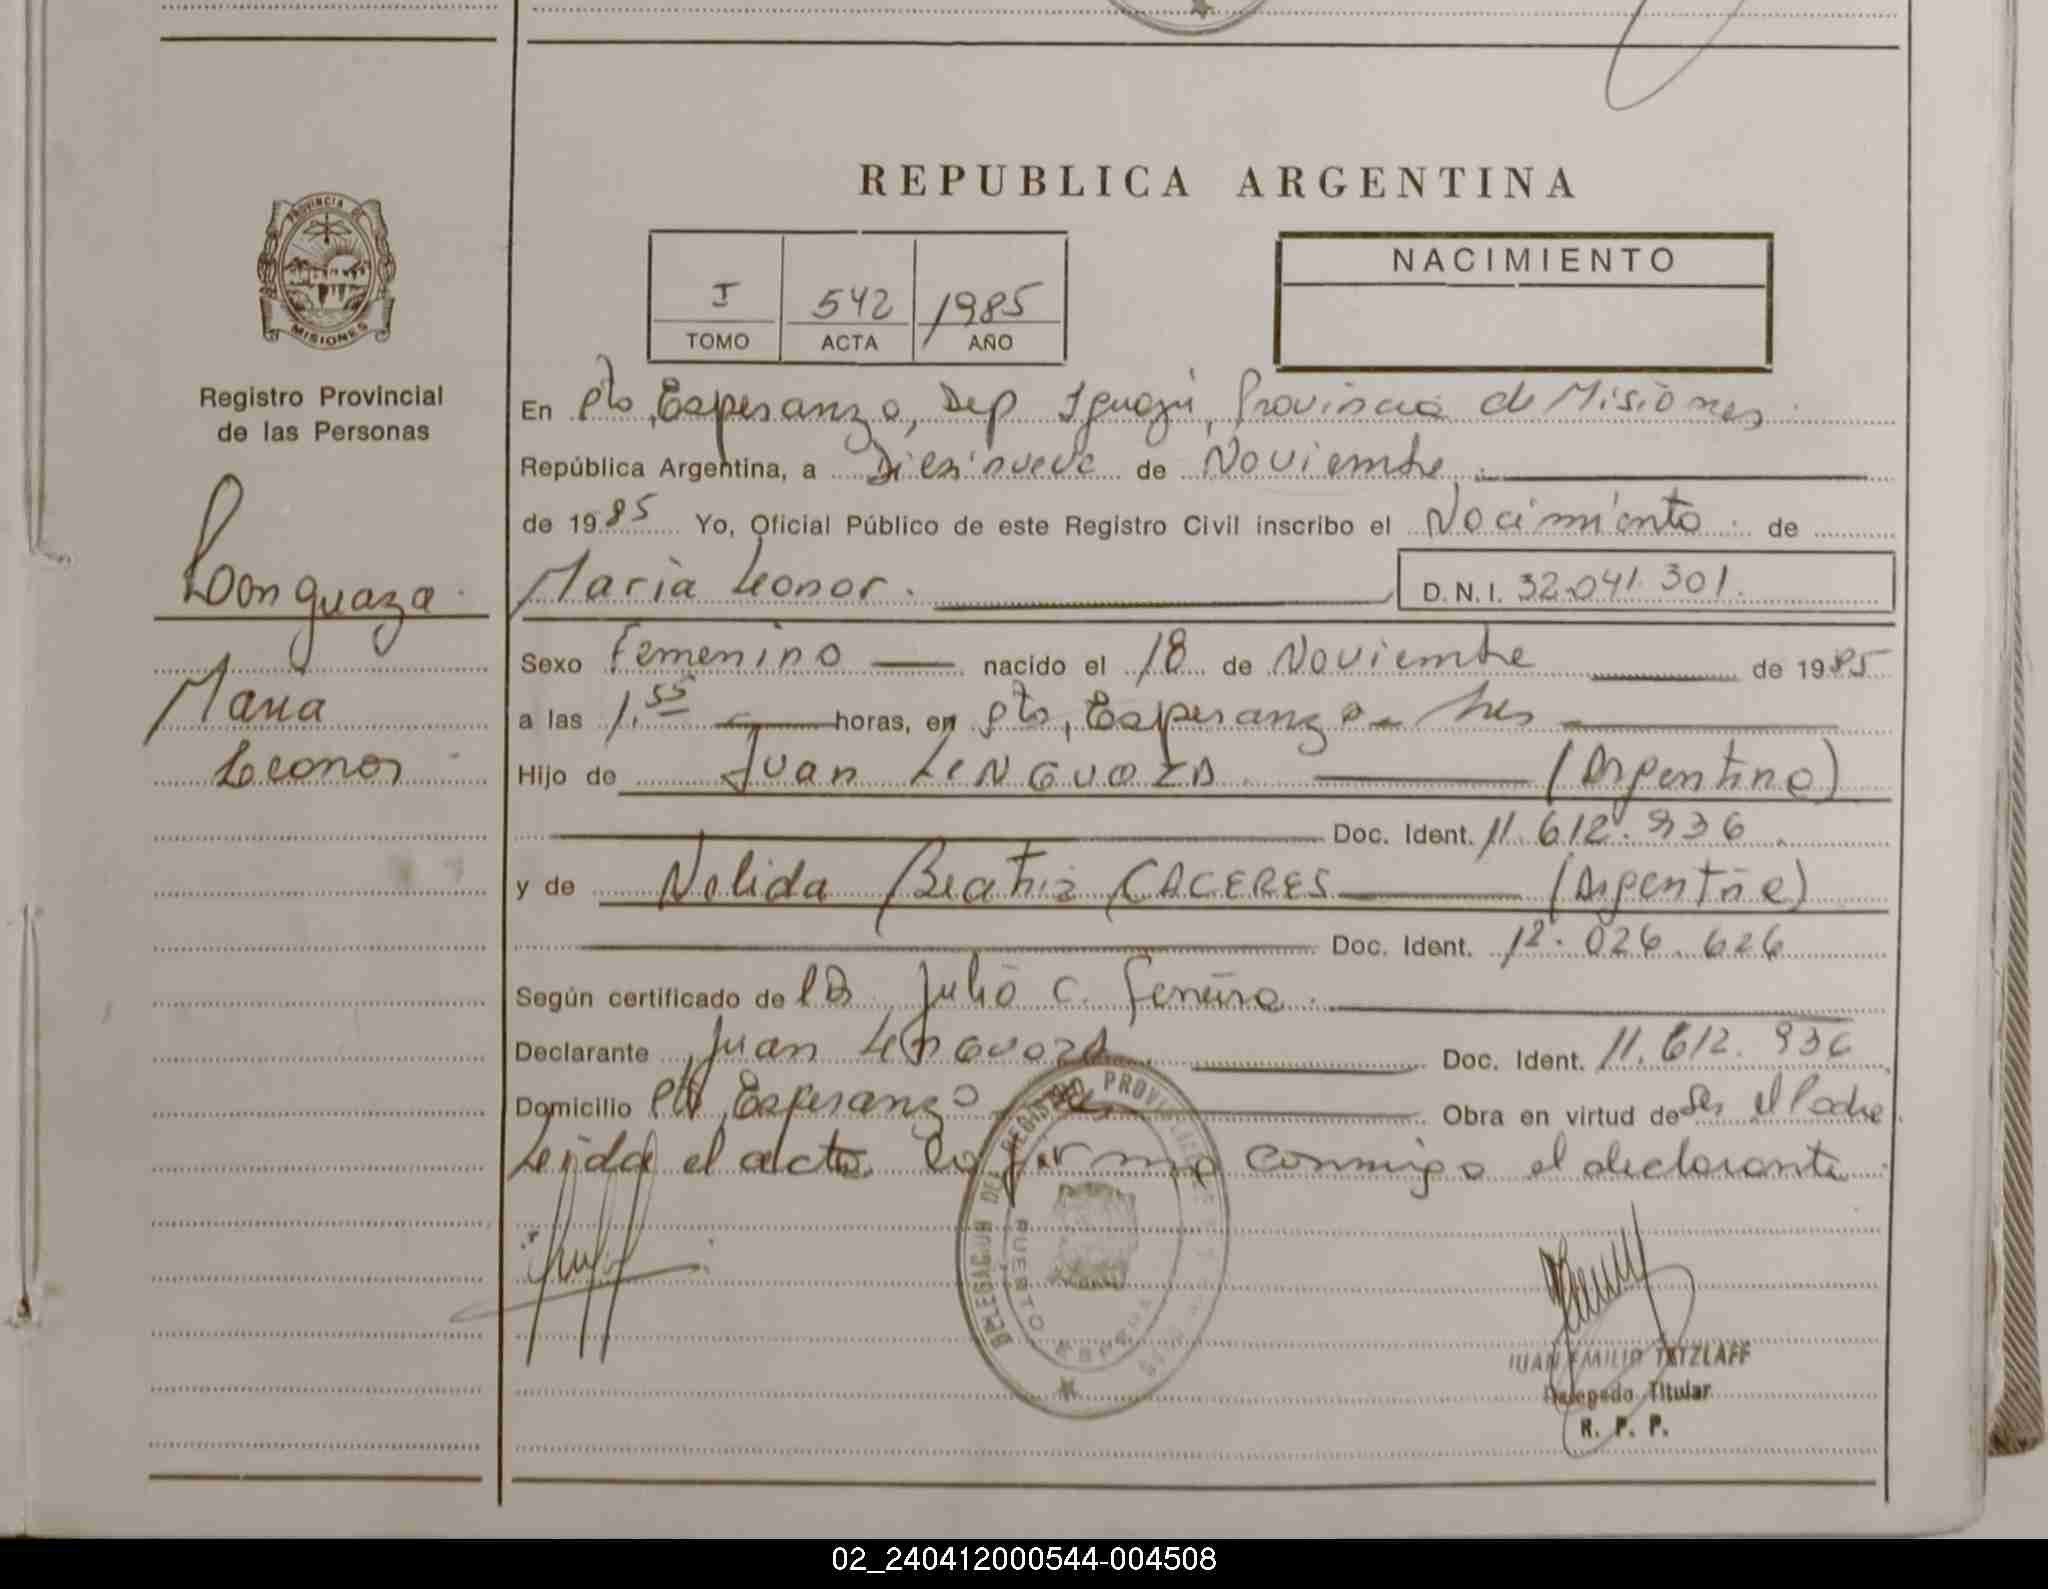 REPUBLICA ARGENTINA
PROVINCIA DE
MISIONES
Registro Provincial
de las Personas
Longuaza
Maria
Leonor
I 542 1985
TOMO ACTA AÑO
NACIMIENTO
En Pto, Esperanza, Dep Iguazú, Provincia de Misiones.
República Argentina, a Diesinueve de Noviembre
de 1985 Yo, Oficial Público de este Registro Civil inscribo el Nacimiento. de
Maria Leonor. D. N. I. 32.041.301.
Sexo Femenino nacido el 18 de Noviembre de 1985
a las 1.55 horas, en Pto, Esperanza - Mes
Hijo de Juan LENGUAZA (Argentino)
Doc. Ident. 11.612.936.
y de Nelida Beatriz CACERES (Argentina)
Doc. Ident. 12.026.626
Según certificado de Julio C.
Declarante Juan Lenguaza Doc. Ident. 11.612.936
Domicilio Pto, Esperanza Obra en virtud de Ser el Padre
Leida el acta la firma conmigo el declarante
DELEGACION DEL REGISTRO PROVINCIAL DE
PUERTO
JUAN EMILIO TATZLAFF
Delegado Titular
R. P. P.
02_240412000544-004508